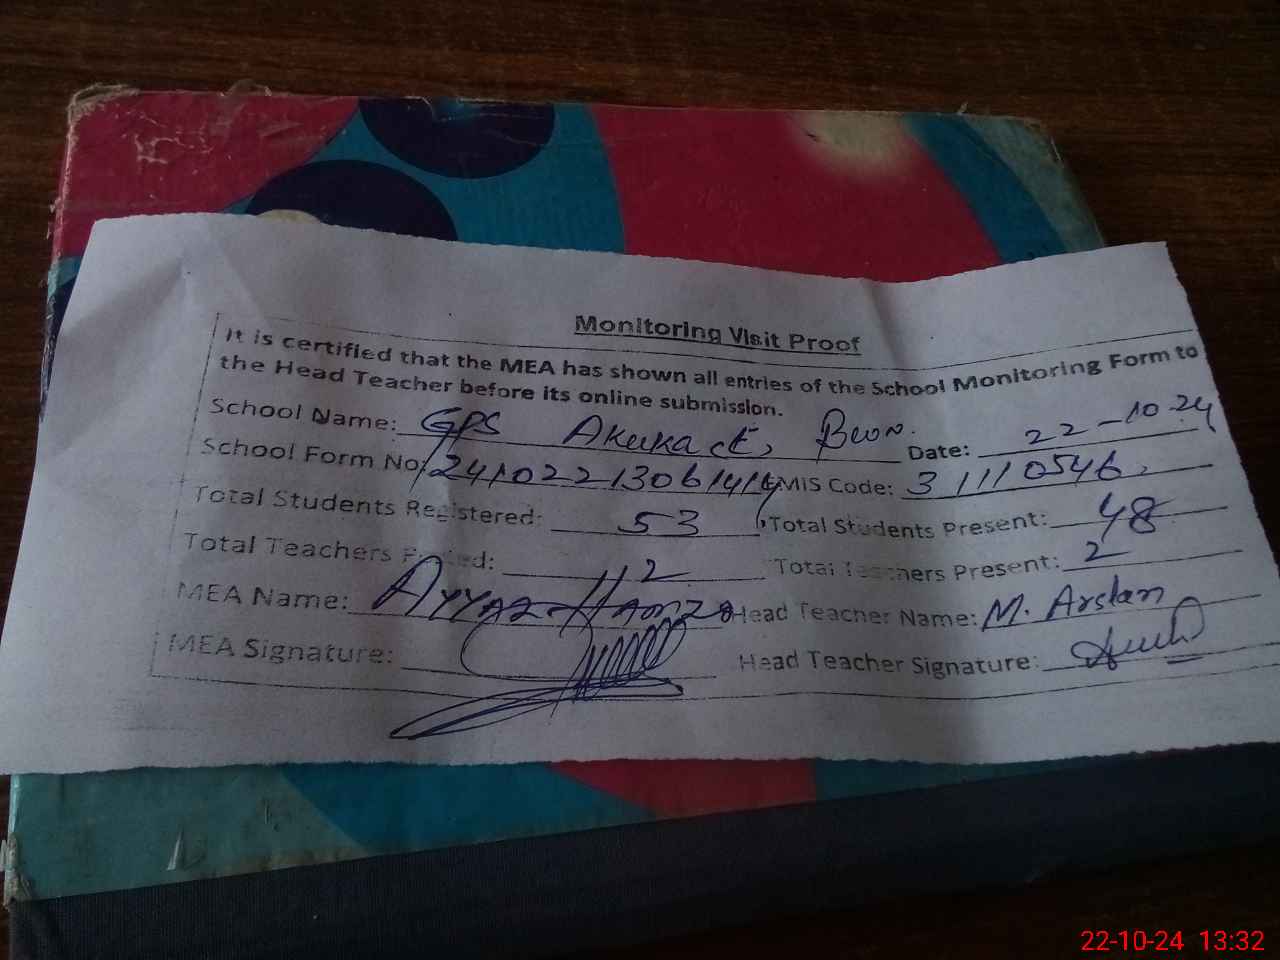 Monitoring Visit Proof
It is certified that the MEA has shown all entries of the School Monitoring Form to
the Head Teacher before its online submission.
School Name: GPS Date: 22-10-24
School Form No: 24102213061414 EMIS Code: 31110546
Total Students Registered: 53 Total Students Present: 48
Total Teachers Posted: 2 Total Teachers Present: 2
MEA Name: Ayyaz Hamza Head Teacher Name: M. Arslan
MEA Signature: Head Teacher Signature:
22-10-24 13:32